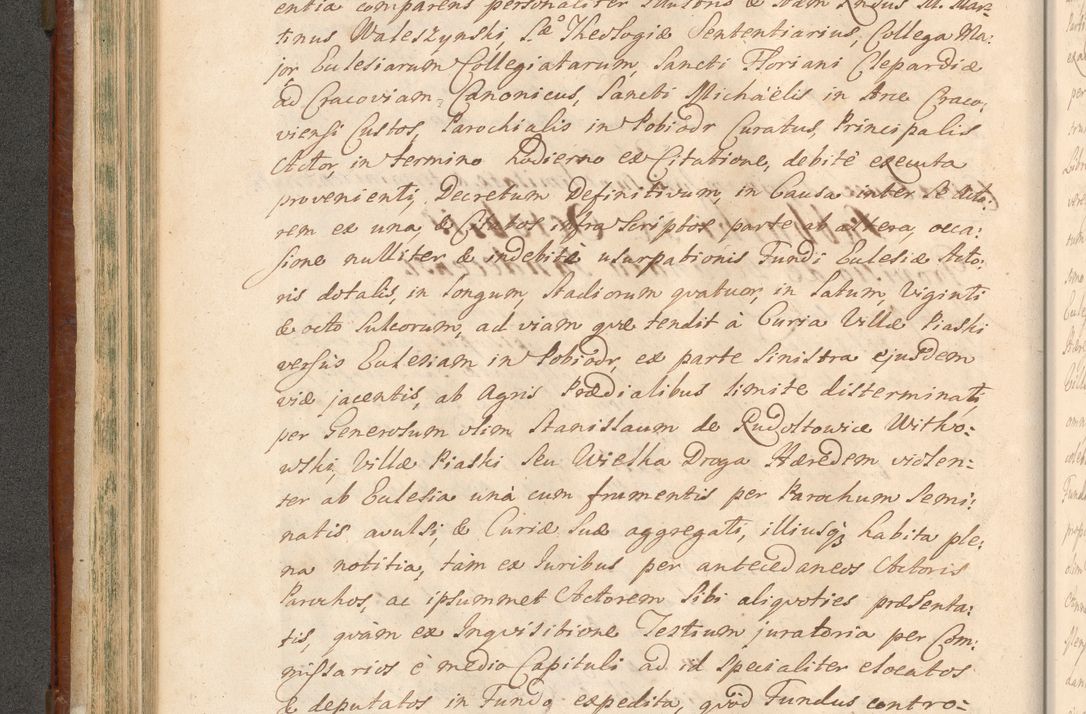 entia comparens personaliter Illustris & Adm Rndus M. Mar=
tinus Waleszynski, Sæ Theologiæ Sententiarius, Collega Ma:
jor Eulesiarum Collegiatarum, Sancti Floriani Clepardiæ
ad Cracoviam, Canonicus, Sancti Michaëlis in Arce Craco,
viensi Custos, Parochialis in Pobiodr Curatus, Principalis
Actor in termino hodierno ex Citatione, debitè executa
provenienti, Decretum Definitivum, in Causa inter se Acto:
rem ex una, & Citatos infra Scriptos parte ab altera, occa:
sione nulliter & indebitè usurpationis Fundi Eulesiæ Acto:
ris dotalis, in longum, Stadiorum qvatuor, in latum, Viginti
& octo Sulcorum, ad viam qvæ tendit à Curia Villæ Piaski
versus Eulesiam in Pobiodr, ex parte Sinistra ejusdem
viæ jacentis, ab Agris Prædialibus limite disterminati
per Generosum olim Stanislaum de Rudoltowice Witho=
wski, Villæ Piaski seu Wielka Droga Hæredem violen=
ter ab Eulesia unà cum frumentis per Parochum Semi:
natis avulsi, & Curiæ suæ aggregati, illiusq3 habita ple:
na notitia, tàm ex Juribus per antecedaneos Actoris
Parochos, ac ipsummet Actorem sibi aliqvoties præsenta:
tis, qvàm ex Inqvisitione Testium juratoria per Com:
missarios è medio Capituli ad id specialiter elocatos
& deputatos in Fundo expedita, qvòd Fundus contro=